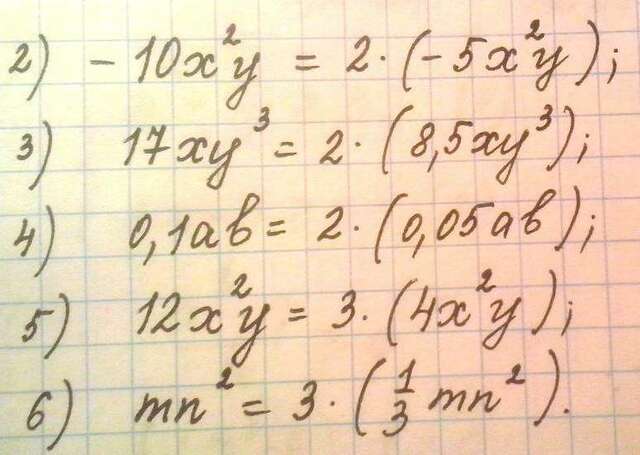 2) - 10x²y = 2 · (- 5x²y);
3) 17xy³ = 2 · (8,5xy³);
4) 0,1ab = 2 · (0,05ab);
5) 12x²y = 3 · (4x²y);
6) mn² = 3 · (1/3 mn²).